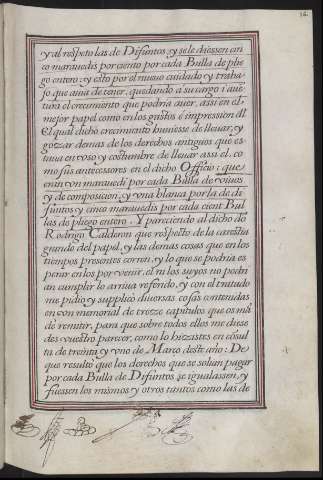 y al respeto las de Difuntos, y se le diessen cin
co marauedis por ciento por cada Bulla de plie
go entero: y esto por el nueuo cuidado, y traba
jo que auia de tener, quedando a su cargo i auē
tura el crecimiento que podria auer, assi en el
mejor papel como en los gastos è impression dl
El qual dicho crecimiento huuiesse de lleuar, y
gozar demas de los derechos antiguos que es
taua en vso y costumbre de lleuar assi el, co
mo sus antecessores en el dicho Officio: que
eran vn marauedi por cada Bulla de viuos
y de composicion, y vna blanca por la de di
funtos y cinco marauedis por cada cient Bul
las de pliego entero. Y pareciendo al dicho dō
Rodrigo Calderon que respeto de la carestia
grande del papel, y las demas cosas que en los
tiempos presentes corren, y lo que se podria es
perar en los por venir, el ni los suyos no podri
an cumplir lo arriua referido, y con el tratado
me pidio y supplicò diuersas cosas contenidas
en vn memorial de treeze capitulos que os mā
de remitir, para que sobre todos ellos me diese
des vuestro parecer, como lo hizistes en cōsul
ta de treinta y vno de Março deste año: De
que resultò que los derechos que se solian pagar
por cada Bulla de Difuntos se igualassen, y
fuessen los mismos y otros tantos como las de